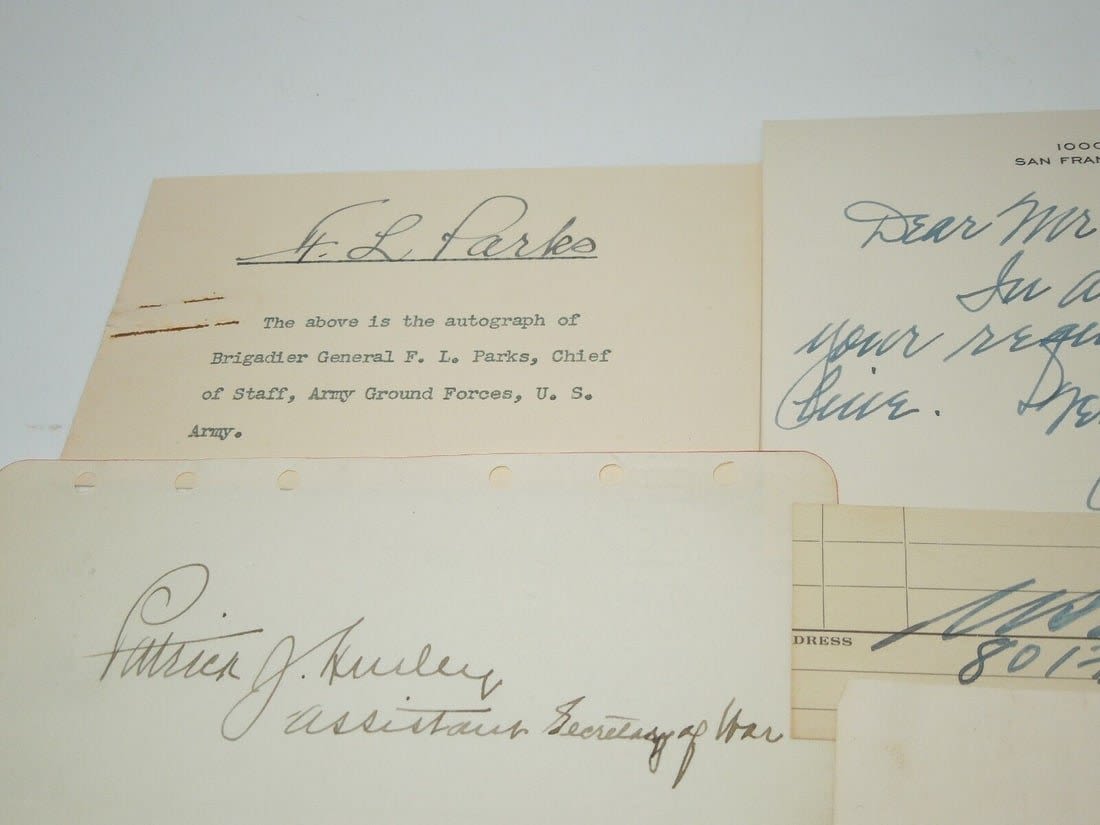 F. L. Parks
The above is the autograph of
Brigadier General F. L. Parks, Chief
of Staff, Army Ground Forces, U. S.
Army.
1000
SAN FRAN
Dear Mr
In a
your requ
Patrick J. Hurley
Assistant Secretary of War
DRESS
8012